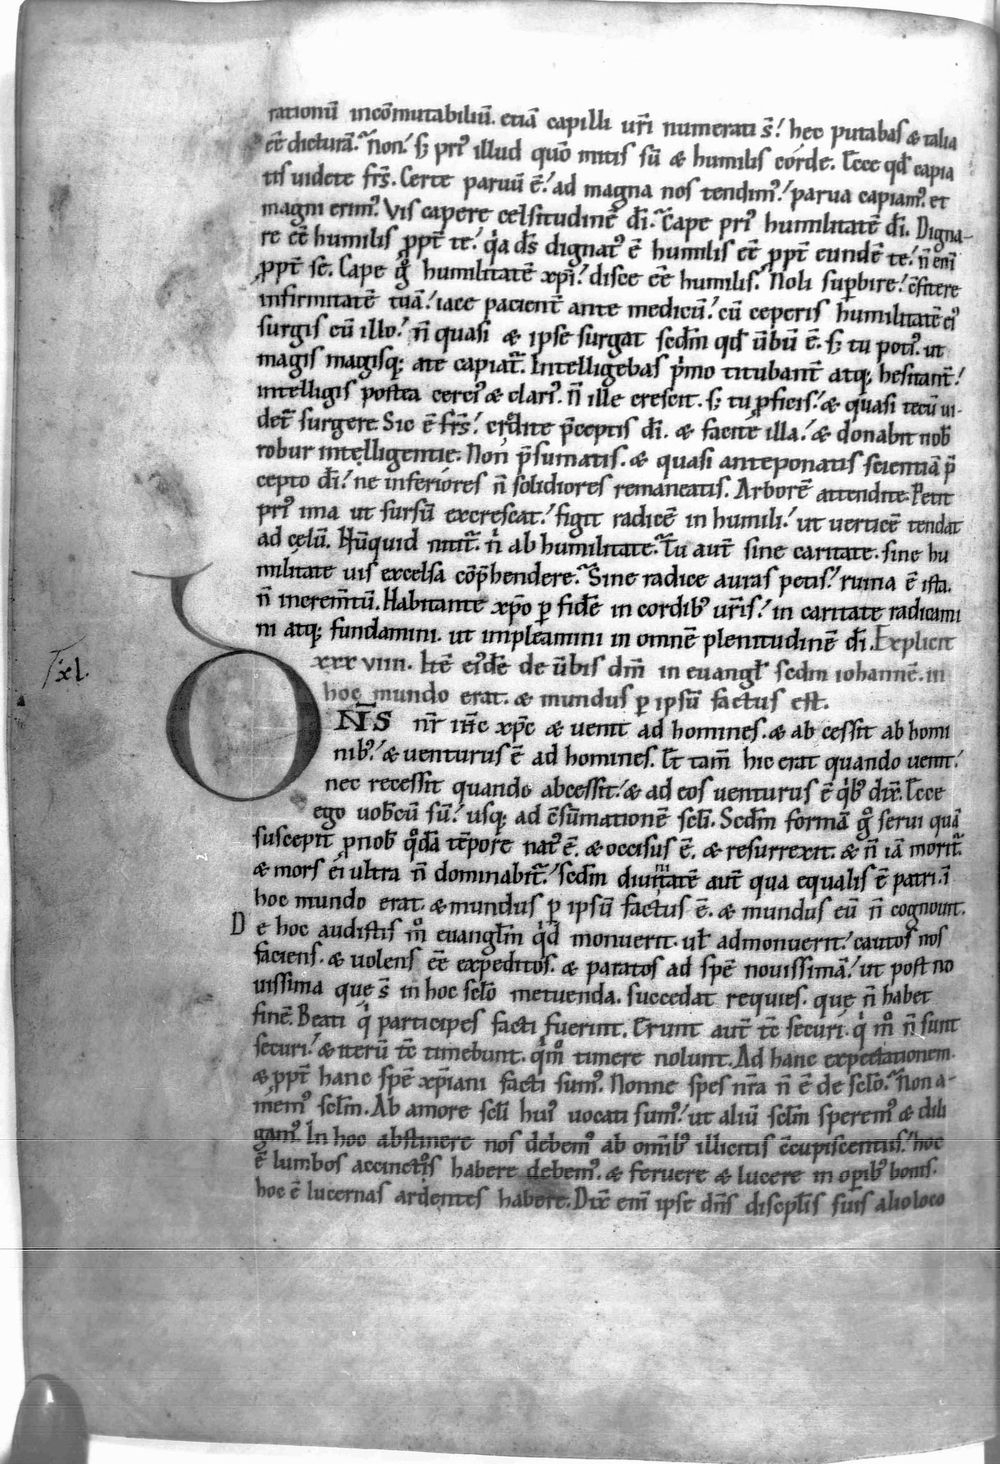 rationū incōmutabiliū. etiā capilli ur̄i numerati s̄! hec putabas & talia
eē dicturā. Non! s; pri' illud quō mitis sū & humilis corde. Ecce qd capia
tis uidete fr̄s. Certe paruū ē! ad magna nos tendim'! parua capiam'. et
magni erim'. Vis capere celsitudinē dī. Cape pri' humilitatē dī. Digna-
re eē humilis ꝓpt̄ te! q'a ds̄ dignat' ē humilis eē ꝓpt̄ eundē te! n̄ eni
ꝓpt̄ se. Cape g° humilitatē xp̄i! disce eē humilis. Noli supbire! c̄fitere
infirmitatē tuā! iace pacient̄ ante medicū! cū ceperis humilitatē ei'
surgis cū illo! n̄ quasi & ipse surgat scdm qd ūbū ē. s; tu poti'. ut
magis magisq; a te capiat̄. Intelligebas p'mo titubant̄ atq; hesitant̄!
intelligis postea cerci' & clari'. n̄ ille crescit. s; tu ꝓficis! & quasi tecū ui-
det̄ surgere. Sic ē fr̄s! credite p̄ceptis dī. & facite illa! & donabit nob̄
robur intelligentie. Non p̄sumatis. & quasi anteponatis scientiā p̄
cepto dī! ne inferiores n̄ solidiores remaneatis. Arborē attendite. Petit
pri' ima ut sursū excrescat! figit radicē in humili! ut uerticē tendat
ad celū. Nūquid nitit̄. n' ab humilitate. Tu aut̄ sine caritate. sine hu
militate uis excelsa cōp̄hendere. Sine radice auras petis! ruina ē ista.
n̄ incrementū. Habitante xp̄o p fidē in cordib' ur̄is! in caritate radicami
ni atq; fundamini. ut impleamini in omnē plenitudinē dī. Explicit
xxx viiii. Itē ei'dē de ūbis dm̄ in euangl̄ scdm iohannē. in
xl.
hoc mundo erat. & mundus p ipsū factus est.
ONS nr̄ ih̄c xp̄c & uenit ad homines. & abcessit ab homi
nib'! & uenturus ē ad homines. Et tam̄ hic erat quando uenit!
nec recessit quando abcessit! & ad eos uenturus ē q'b' dix̄. Ecce
ego uobcū sū! usq; ad c̄sūmationē scl̄i. Scdm formā g° serui quā
suscepit ꝓ nob̄ q°dā tēpore nat' ē. & occisus ē. & resurrexit. & n̄ iā morit̄.
& mors ei ultra n̄ dominabit̄! scdm diuinitatē aut̄ qua equalis ē patri. ī
hoc mundo erat. & mundus p ipsū factus ē. & mundus eū n̄ cognouit.
De hoc audistis m° euanglm̄ q'd monuerit. ul̄ admonuerit! cautos nos
faciens. & uolens eē expeditos. & paratos ad spē nouissimā! ut post no
uissima que s̄ in hoc scl̄o metuenda. succedat requies. que n̄ habet
finē. Beati q' participes facti fuerint. Erunt aut̄ tc̄ securi. q' m° n̄ sunt
securi! & iterū tc̄ timebunt. q' m° timere nolunt. Ad hanc expectationem.
& ꝓpt̄ hanc spē xp̄iani facti sum'. Nonne spes nr̄a n̄ ē de scl̄o. Non a-
mem' sclm̄. Ab amore scl̄i hui' uocati sum'! ut aliū sclm̄ sperem' & dili
gam'. In hoc abstinere nos debem' ab omīb' illicitis c̄cupiscentiis! hoc
ē lumbos accinctos habere debem'. & feruere & lucere in opib' bonis.
hoc ē lucernas ardentes habere. Dix̄ eni ipse dn̄s discipl̄is suis alio loco